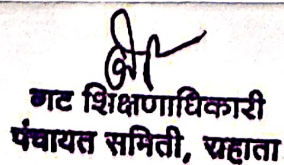 गट शिक्षणाधिकारी
पंचायत समिती, राहाता